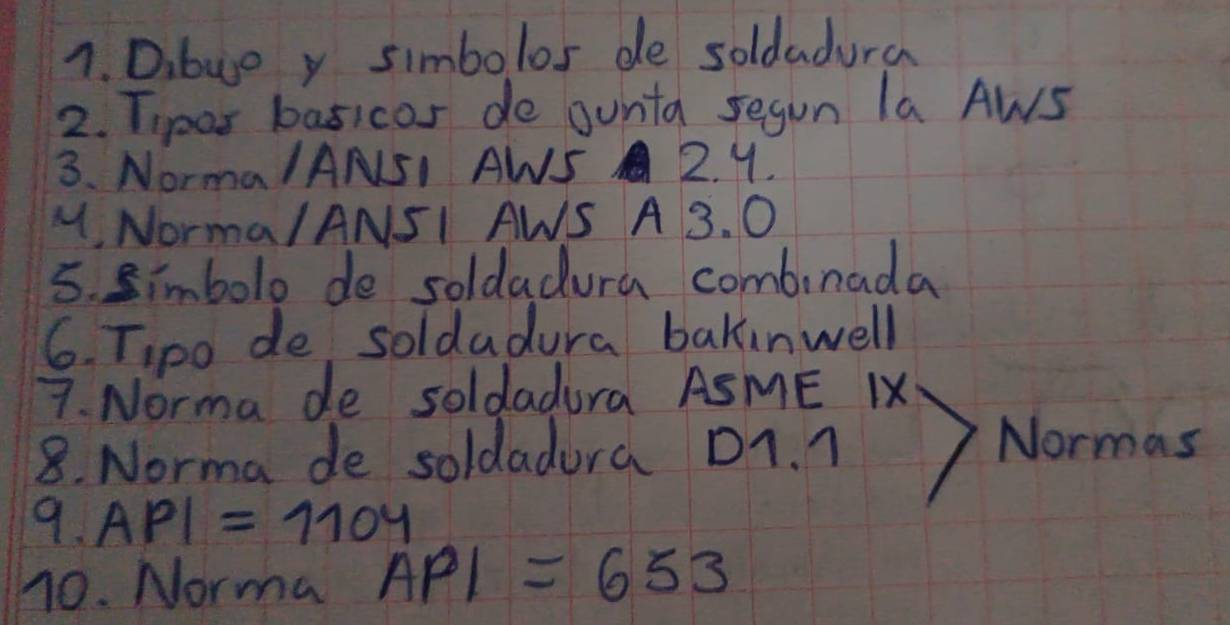 1. Dibujo y simbolos de soldadura
2. Tipos basicos de junta segun la AWS
3. Norma/ANSI AWS A 2.4.
4. Norma/ANSI AWS A 3.0
5. Simbolo de soldadura combinada
6. Tipo de soldadura bakinwell
7. Norma de soldadura ASME IX
8. Norma de soldadura D1.1
Normas
9. API = 1104
10. Norma API = 653